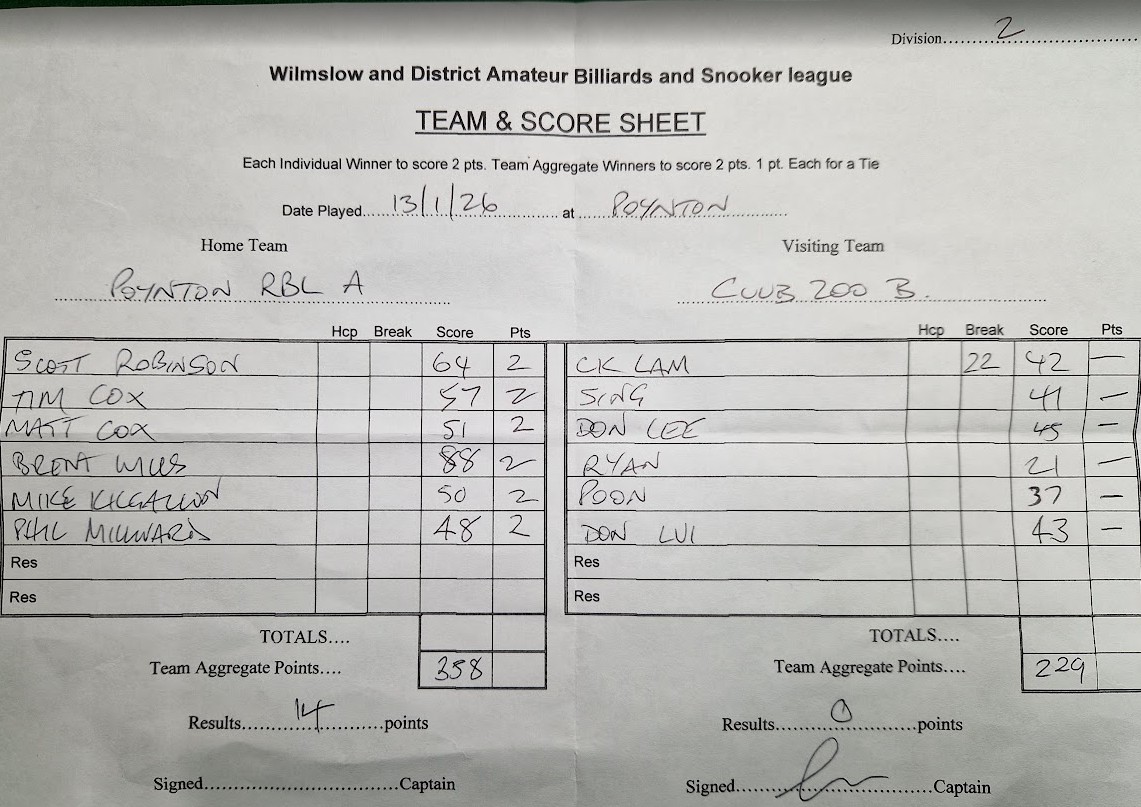 Division 2
Wilmslow and District Amateur Billiards and Snooker league
TEAM & SCORE SHEET
Each Individual Winner to score 2 pts. Team Aggregate Winners to score 2 pts. 1 pt. Each for a Tie
Date Played 13/1/26 at POYNTON
Home Team Visiting Team
POYNTON RBL A CLUB 200 B.
Hcp Break Score Pts Hcp Break Score Pts
SCOTT ROBINSON 64 2 CK LAM 22 42 —
TIM COX 57 2 SING 41 —
MATT COX 51 2 DON LEE 45 —
BRENT WILLS 88 2 RYAN 21 —
MIKE KILGALLON 50 2 POON 37 —
PHIL MILLWARD 48 2 DON LUI 43 —
Res Res
Res Res
TOTALS.... TOTALS....
Team Aggregate Points.... 358 Team Aggregate Points.... 229
Results 14 points Results 0 points
Signed Captain Signed Captain